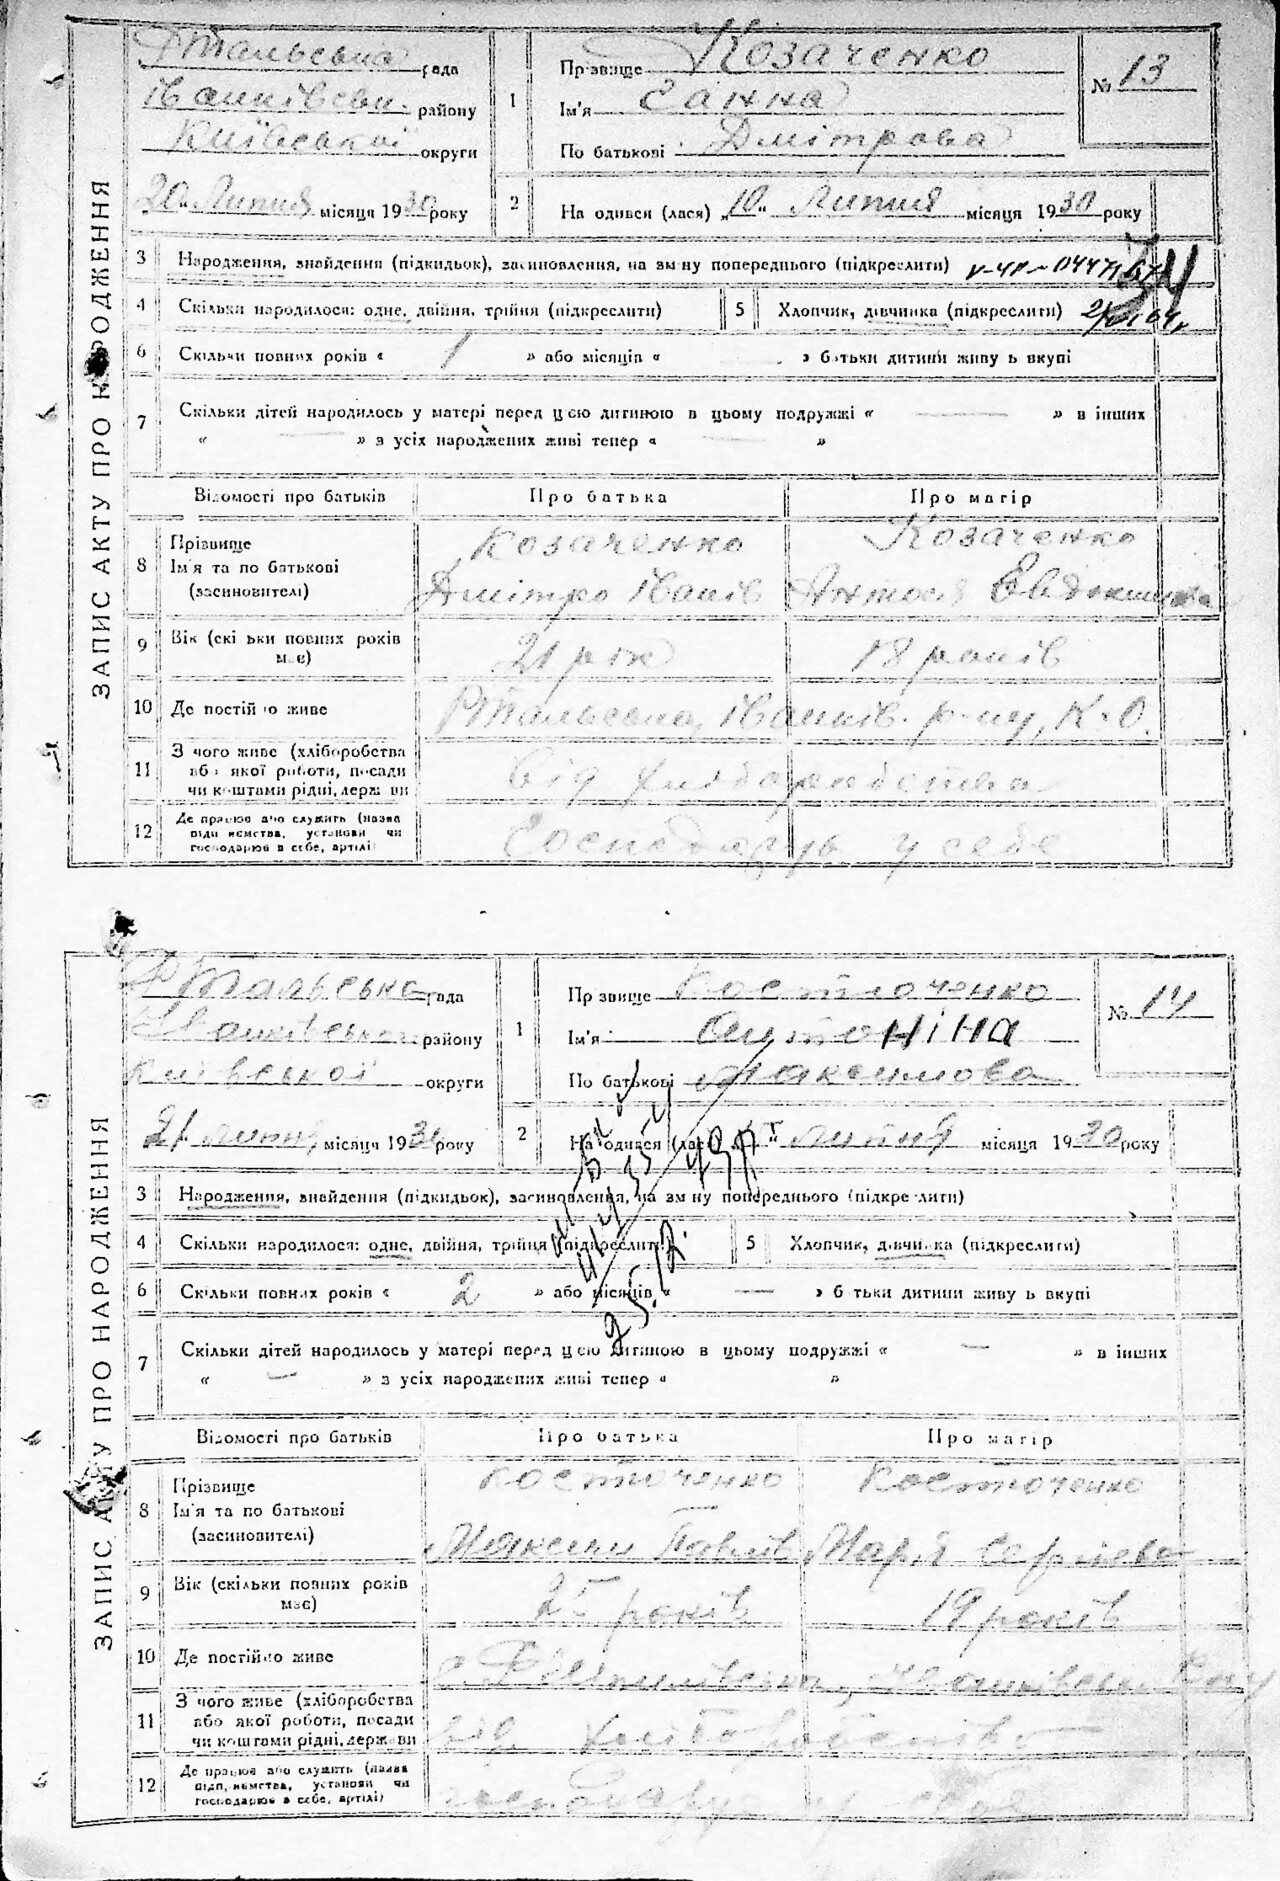 ЗАПИС АКТУ ПРО НАРОДЖЕННЯ
рада
Іванківськ. району
Київської округи
20 Липня місяця 1930 року
1
Прізвище Козаченко
Ім'я Ганна
По батькові Дмітрова
№ 13
2
На одився (лася) „10" Липня місяця 1930 року
3 Народження, знайдення (підкидьок), засиновлення, на зм ну попереднього (підкреслити)
4 Скільки народилося: одне, двійня, трійня (підкреслити)
5 Хлопчик, дівчинка (підкреслити)
6 Скільки повних років « 1 » або місяців « — » б тьки дитини живу ь вкупі
7 Скільки дітей народилось у матері перед цією дитиною в цьому подружжі « — » в інших
« — » з усіх народжених живі тепер « — »
Відомості про батьків Про батька Про матір
8 Прізвище
Ім'я та по батькові
(засиновителі)
Козаченко
Дмітро Іванів
Козаченко
9 Вік (скі ьки повних років
має)
21 рік
18 років
10 Де постійно живе
Іванків. р-ну, К. О.
11 З чого живе (хліборобства
або якої роботи, посади
чи коштами рідні, держ ви
Від хліборобства
12 Де працює або служить (назва
підп иємства, установи чи
господарює в себе, артілі)
у себе
ЗАПИС АКТУ ПРО НАРОДЖЕННЯ
рада
району
Київської округи
21 липня місяця 1930 року
1
Пр звище Костюченко
Ім'я Антоніна
По батькові Максимова
№ 14
2
На одився (лас липня місяця 1930 року
3 Народження, знайдення (підкидьок), засиновлення, на зм ну попереднього (підкре лити)
4 Скільки народилося: одне, двійня, трійня (підкреслити)
5 Хлопчик, дівчинка (підкреслити)
6 Скільки повних років « 2 » або місяців « — » б тьки дитини живу ь вкупі
7 Скільки дітей народилось у матері перед цією дитиною в цьому подружжі « — » в інших
« — » з усіх народжених живі тепер « »
Відомості про батьків Про батька Про матір
8 Прізвище
Ім'я та по батькові
(засиновителі)
Костюченко
Максим Павлів
Костюченко
Марія Сергієва
9 Вік (скільки повних років
має)
25 років
19 років
10 Де постійно живе
11 З чого живе (хліборобства
або якої роботи, посади
чи коштами рідні, держ ви
від хліборобства
12 Де працює або служить (назва
підп иємства, установи чи
господарює в себе, артілі)